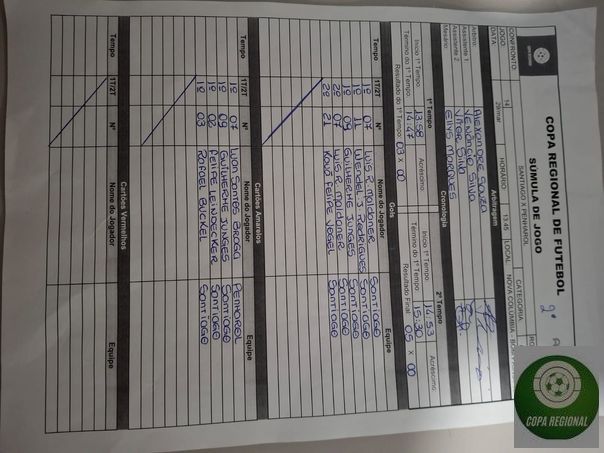 COPA REGIONAL DE FUTEBOL
SÚMULA DE JOGO
2º
CONFRONTO: SANTIAGO X PENHAROL CATEGORIA:
JOGO: 14 HORÁRIO: 13:45 LOCAL: NOVA COLUMBIA - BOM
DATA: 29/mar
Arbitragem
Árbitro: Alexandre Souza
Assistente 1: Venâncio Silva
Assistente 2: Vitor Silva
Mesário: Ellys Marques
Cronologia
1º Tempo 2º Tempo
Início 1º Tempo: 13:58 Acréscimo: Início 1º Tempo: 14:53 Acréscimo:
Término do 1º Tempo: 14:47 Término do 1º Tempo: 15:30
Resultado do 1º Tempo: 03 X 00 Resultado Final: 05 X 00
Gols
Tempo 1T/2T Nº Nome do Jogador Equipe
1º 07 Luis R. Maldaner Santiago
1º 11 Wendel J. Rodrigues Santiago
1º 09 Guilherme Junges Santiago
2º 07 Luis R. Maldaner Santiago
2º 21 Kauã Felipe Vogel Santiago
Cartões Amarelos
Tempo 1T/2T Nº Nome do Jogador Equipe
1º 07 Luan Santos Braga Penharol
1º 09 Guilherme Junges Santiago
1º Felipe Leindecker Santiago
1º 03 Rafael Buckel Santiago
Cartões Vermelhos
Tempo 1T/2T Nº Nome do Jogador Equipe
COPA REGIONAL